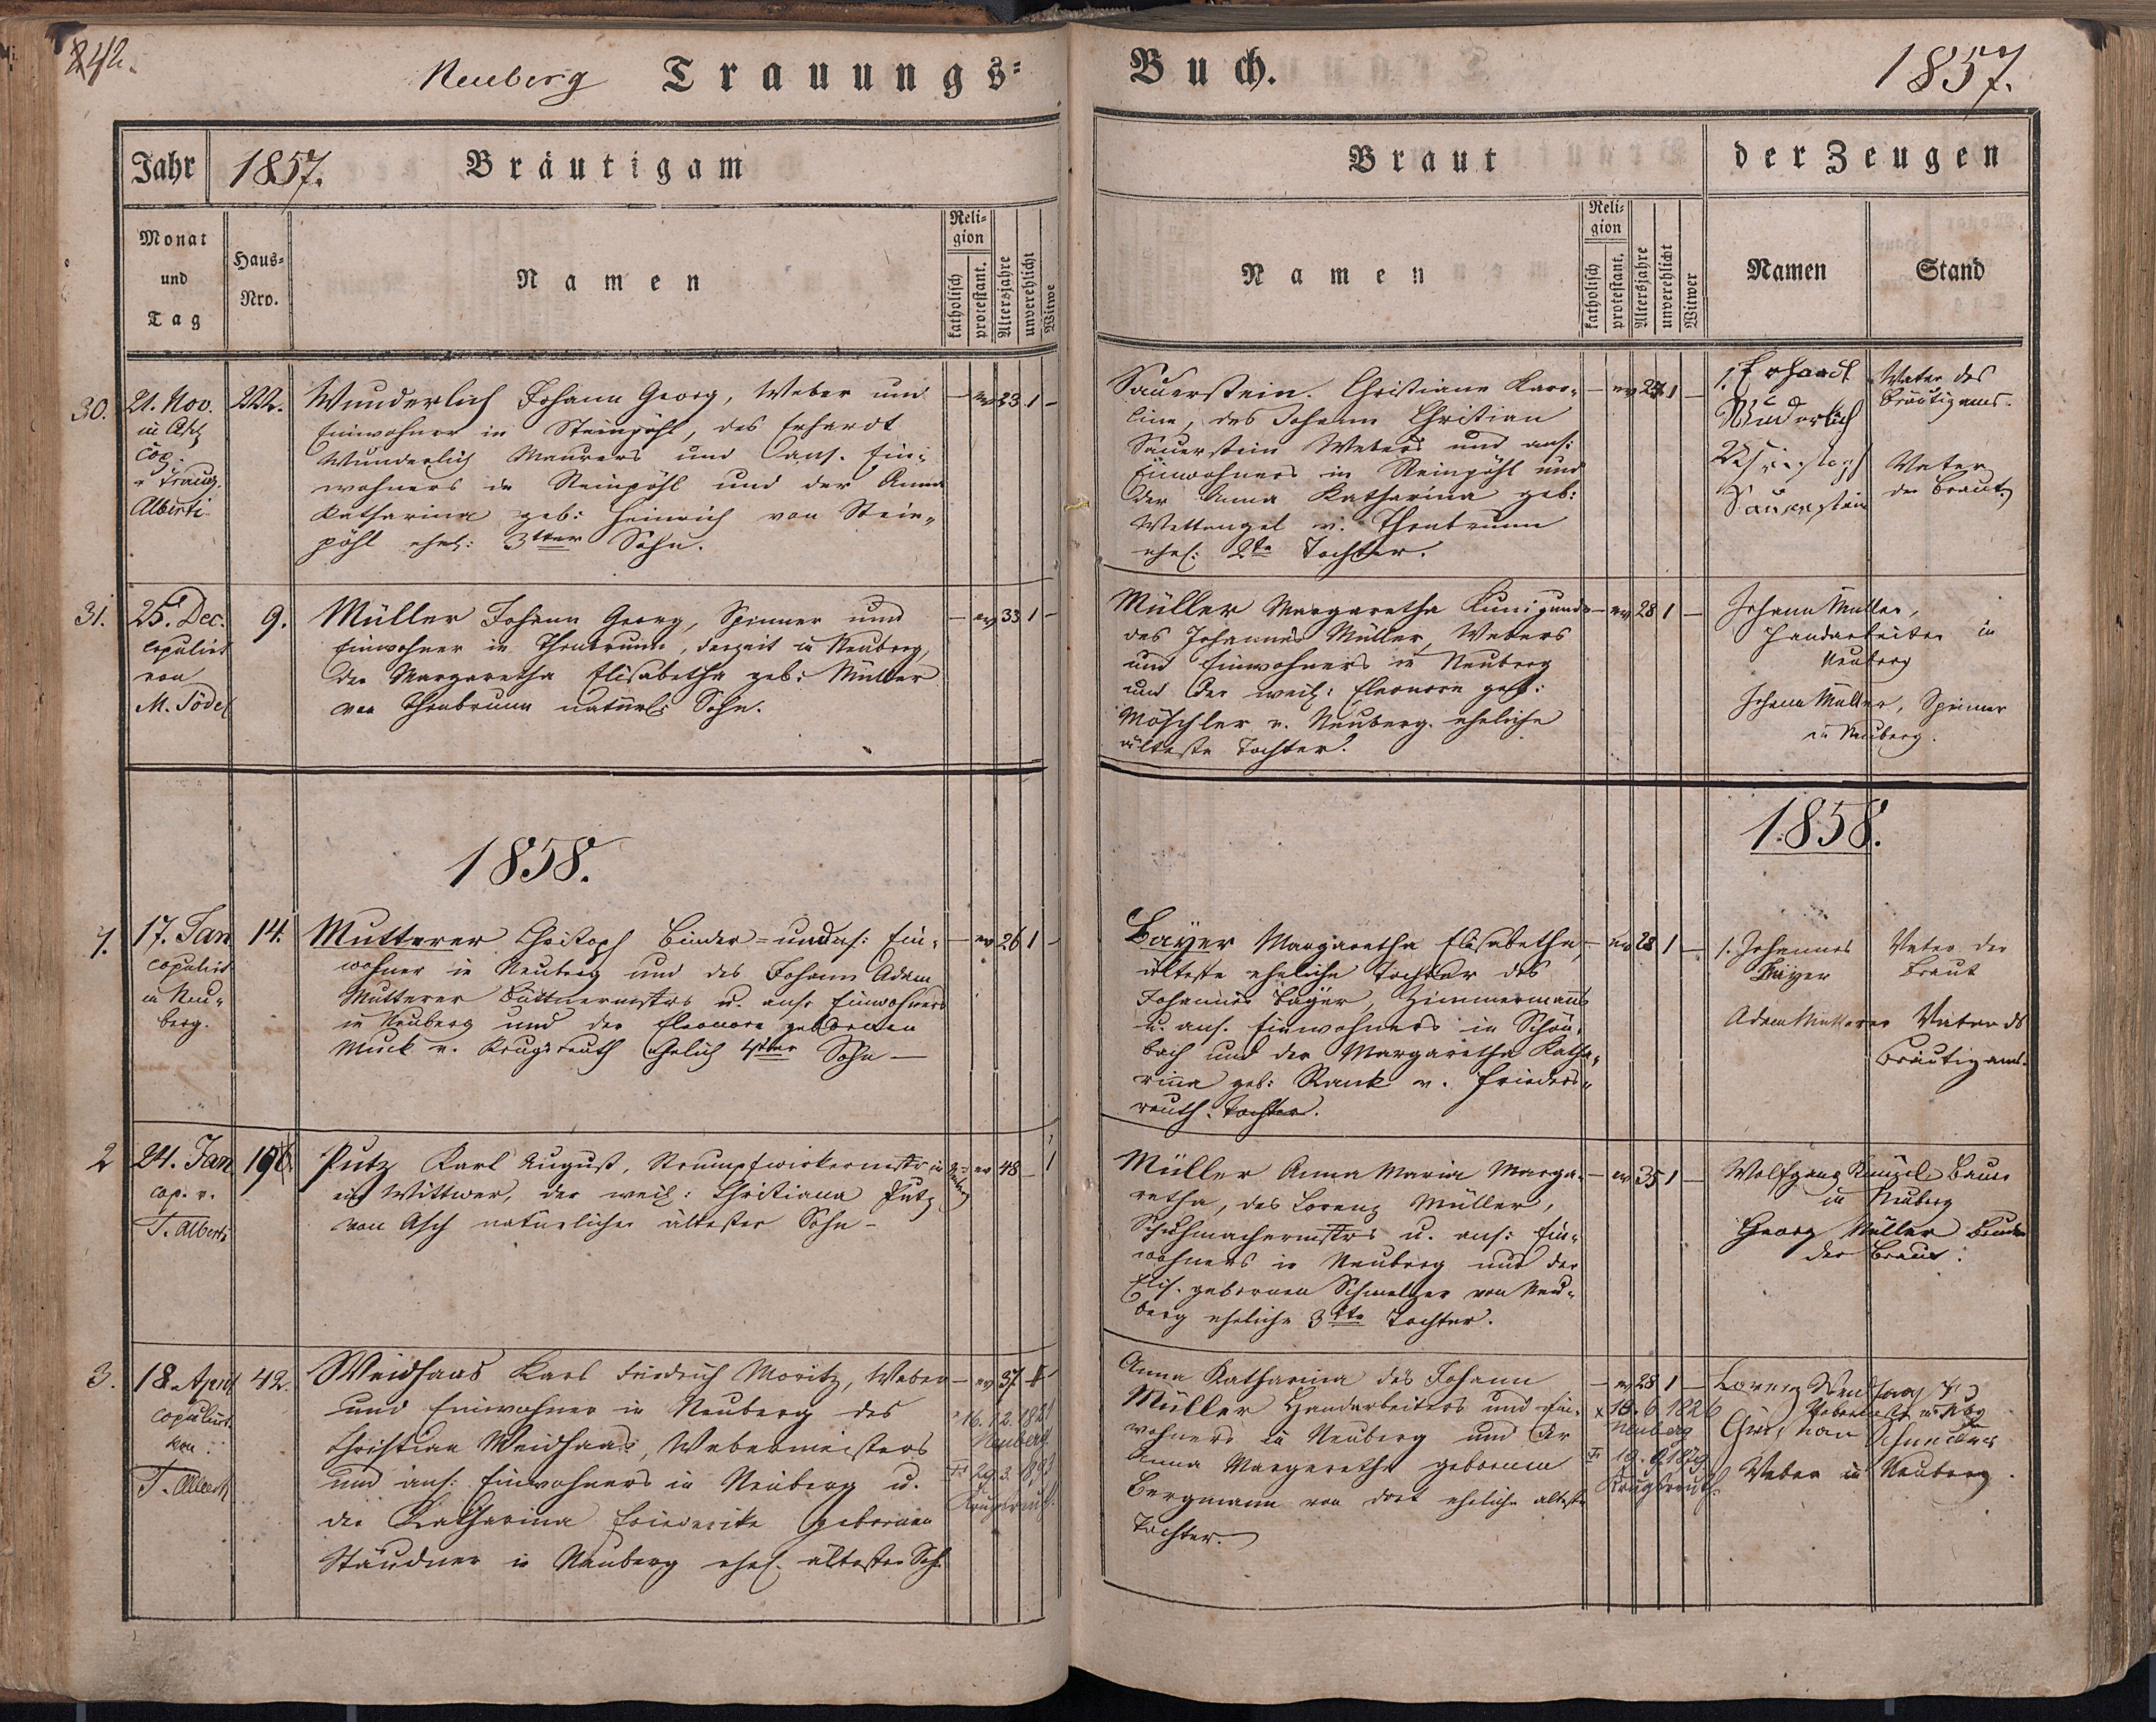 242.
Neuberg Trauungs=
Buch.
1857.
Jahr 1857. Bräutigam
Braut
der Zeugen
Monat und Tag
Haus= Nro.
Namen
Reli= gion
katholisch
protestant.
Altersjahre
unverehlicht
Witwe
Namen
Reli= gion
katholisch
protestant.
Altersjahre
unverehlicht
Witwer
Namen
Stand
30.
21. Nov.
in Asch
cop.
v Traug.
Alberti
222.
Wunderlich Johann Georg, Weber und
Einwohner in Steinpöhl, des Erhardt
Wunderlich Maurers und ans. Ein=
wohners in Steinpöhl und der Anna
Katharina geb: Heinrich von Stein=
pöhl ehel: 3tter Sohn.
– ev 23 1 –
Sauerstein. Christiane Karo=
line, des Johann Christian
Sauerstein Webers und ans:
Einwohners in Steinpöhl und
der Anna Katharina geb:
Wettengel v. Thonbrunn
ehel: 2te Tochter.
– ev 27 1 –
1. Erhardt
Wunderlich
Sauerstein
Vater des
Bräutigams.
Vater
der Braut
31.
25. Dec.
copulirt
von
M. Jödel
9.
Müller Johann Georg, Spinner und
Einwohner in Thonbrunn, derzeit in Neuberg,
der Margaretha Elisabetha geb: Müller
von Thonbrunn natürl: Sohn.
– ev 33 1 –
Müller Margaretha Kunigunde
des Johannes Müller, Webers
und Einwohners in Neuberg
und der weil: Eleonore geb:
Möschler v. Neuberg. eheliche
älteste Tochter.
– ev 28 1 –
Johann Müller,
Handarbeiter in
Neuberg
Johann Müller, Spinner
in Neuberg.
1858.
1858.
1.
17. Jan
copulirt
in Neu=
berg.
14.
Mutterer Christoph Binder = und ans: Ein=
wohner in Neuberg und des Johann Adam
Mutterer Büttnermstrs u. ans: Einwohners
in Neuberg und der Eleonore gebornen
Muck v. Krugsreuth ehelich 4ter Sohn –
– ev 26 1 –
Bayer Margaretha Elisabetha,
älteste eheliche Tochter des
Johannes Bayer, Zimmermanns
u. ans. Einwohners in Schön=
bach und der Margaretha Katha=
rina geb: Rank v. Frieders=
reuth. Tochter.
– ev 28 1 –
1. Johannes
Bayer
Vater der
Braut
Adam Mutterer Vater ds
Bräutigams.
2
24. Jan
cop. v.
T. Alberti
196.
Putz Karl August, Strumpfwirkermstr in
ein Wittwer, der weil: Christiana Putz
von Asch natürlicher ältester Sohn –
– ev 48 – 1
Müller Anna Maria Marga=
retha, des Lorenz Müller,
Schuhmachermstrs u. ans: Ein=
wohners in Neuberg und der
Elis. gebornen Schmelzer von Neu=
berg eheliche 3tte Tochter.
– ev 35 1 –
Wolfgang Künzel, Bauer
in Neuberg
Georg Müller Bruder
der Braut.
3.
18. April
copulirt
von
T. Alberti
42.
Weidhaas Karl Friedrich Moritz, Weber
und Einwohner in Neuberg des
Christian Weidhaas, Webermeisters
und ans: Einwohners in Neuberg u.
der Katharina Friederike gebornen
Stäudner in Neuberg ehel. ältester Sohn
– ev 37 1
* 16.12.1821
Neuberg
29.3.1893
Krugsreuth.
Anna Katharina des Johann
Müller Handarbeiters und Ein=
wohners in Neuberg und der
Anna Margaretha gebornen
Bergmann von dort eheliche älteste
Tochter.
– ev 28 1 –
Neuberg
Krugsreuth.
Lorenz Weidhaas
Christian
Weber in Neuberg.